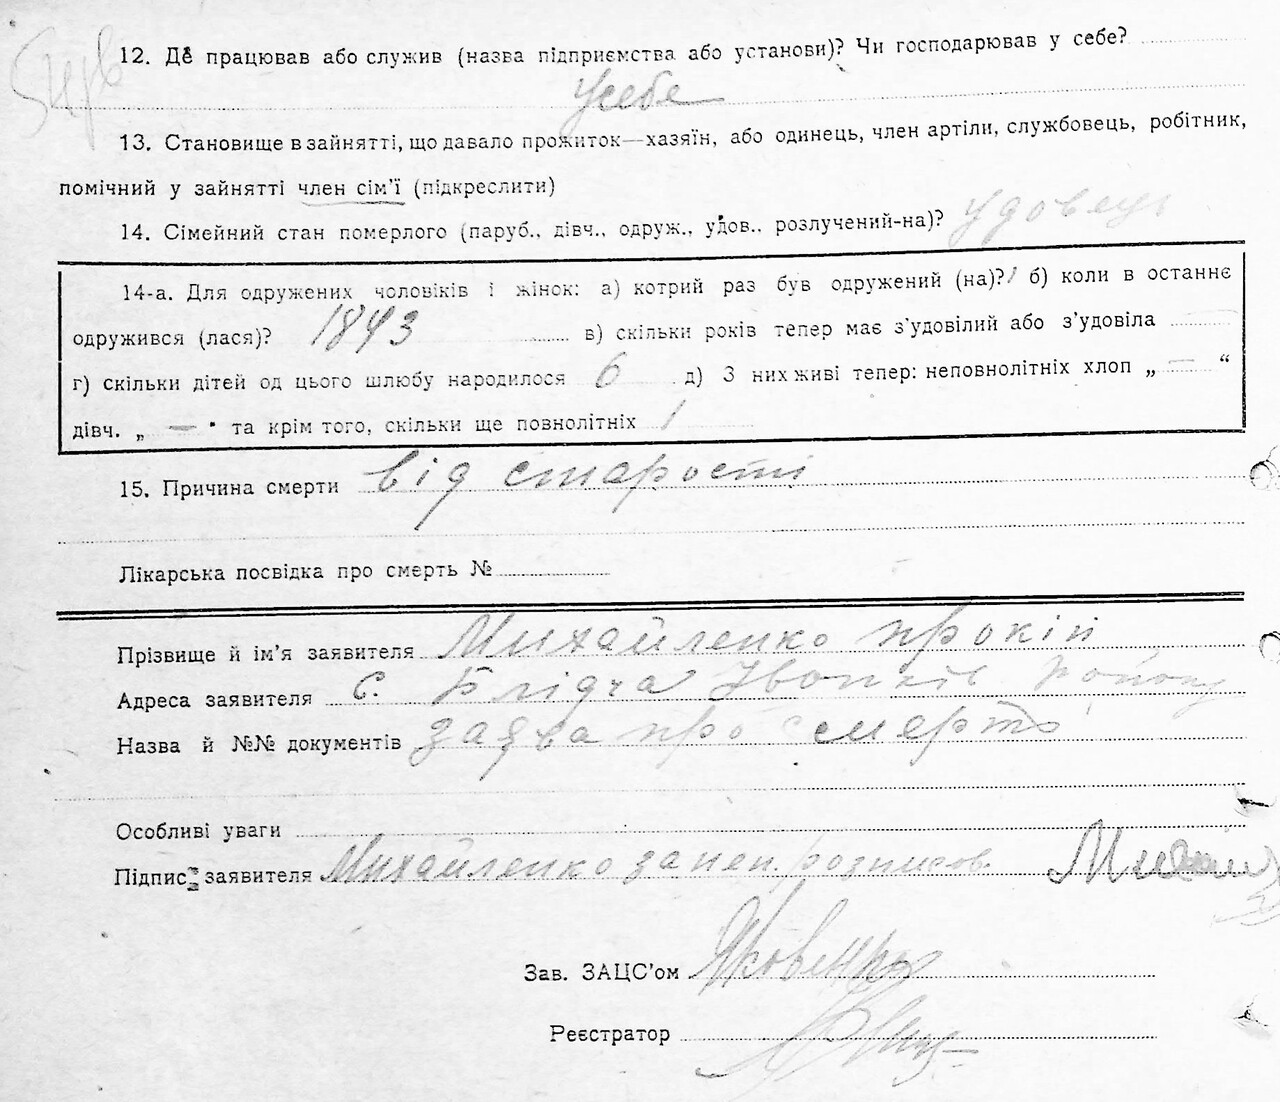 12. Де працював або служив (назва підприємства або установи)? Чи господарював у себе?
Усебе
13. Становище в зайнятті, що давало прожиток—хазяїн, або одинець, член артіли, службовець, робітник,
помічний у зайнятті член сім'ї (підкреслити)
14. Сімейний стан померлого (паруб., дівч., одруж., удов., розлучений-на)? Удовець
14-а. Для одружених чоловіків і жінок: а) котрий раз був одружений (на)? 1 б) коли в останнє
одружився (лася)? 1843 в) скільки років тепер має з'удовілий або з'удовіла
г) скільки дітей од цього шлюбу народилося 6 д) З них живі тепер: неповнолітніх хлоп „ — “
дівч. „ — " та крім того, скільки ще повнолітніх 1
15. Причина смерти від старості
Лікарська посвідка про смерть №
Прізвище й ім'я заявителя Михайленко Прокіп
Адреса заявителя с. Блідча Іванків району
Назва й №№ документів заява про смерть
Особливі уваги
Підпис заявителя Михайленко за неп. розписов.
Зав. ЗАЦС'ом Яковенко
Реєстратор